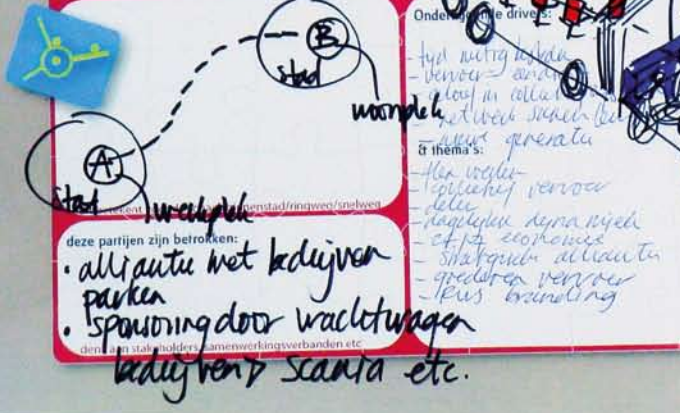 B
stad
woonplek
A
stad
werkplek
tekent
enstad/ringweg/snelweg
deze partijen zijn betrokken:
• alliantie met bedrijven
parken
• sponsoring door vrachtwagen
denk aan stakeholders, samenwerkingsverbanden etc
bedrijven → Scania etc.
drivers:
- tijd nuttig besteden
- vervoer =
- geloof in
- netwerk
- nieuwe generatie
& thema's:
- flex werken
- collectief vervoer
- delen
- dagelijkse dynamiek
- economie
- strategische alliantie
- goederen vervoer
- branding